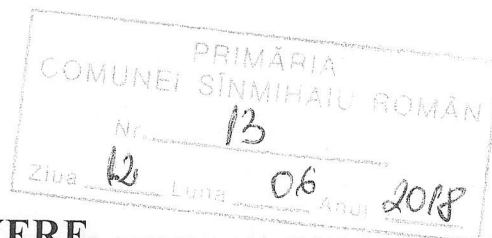 PRIMĂRIA
COMUNEI SÎNMIHAIU ROMÂN
Nr. 13
Ziua 12 Luna 06 Anul 2018